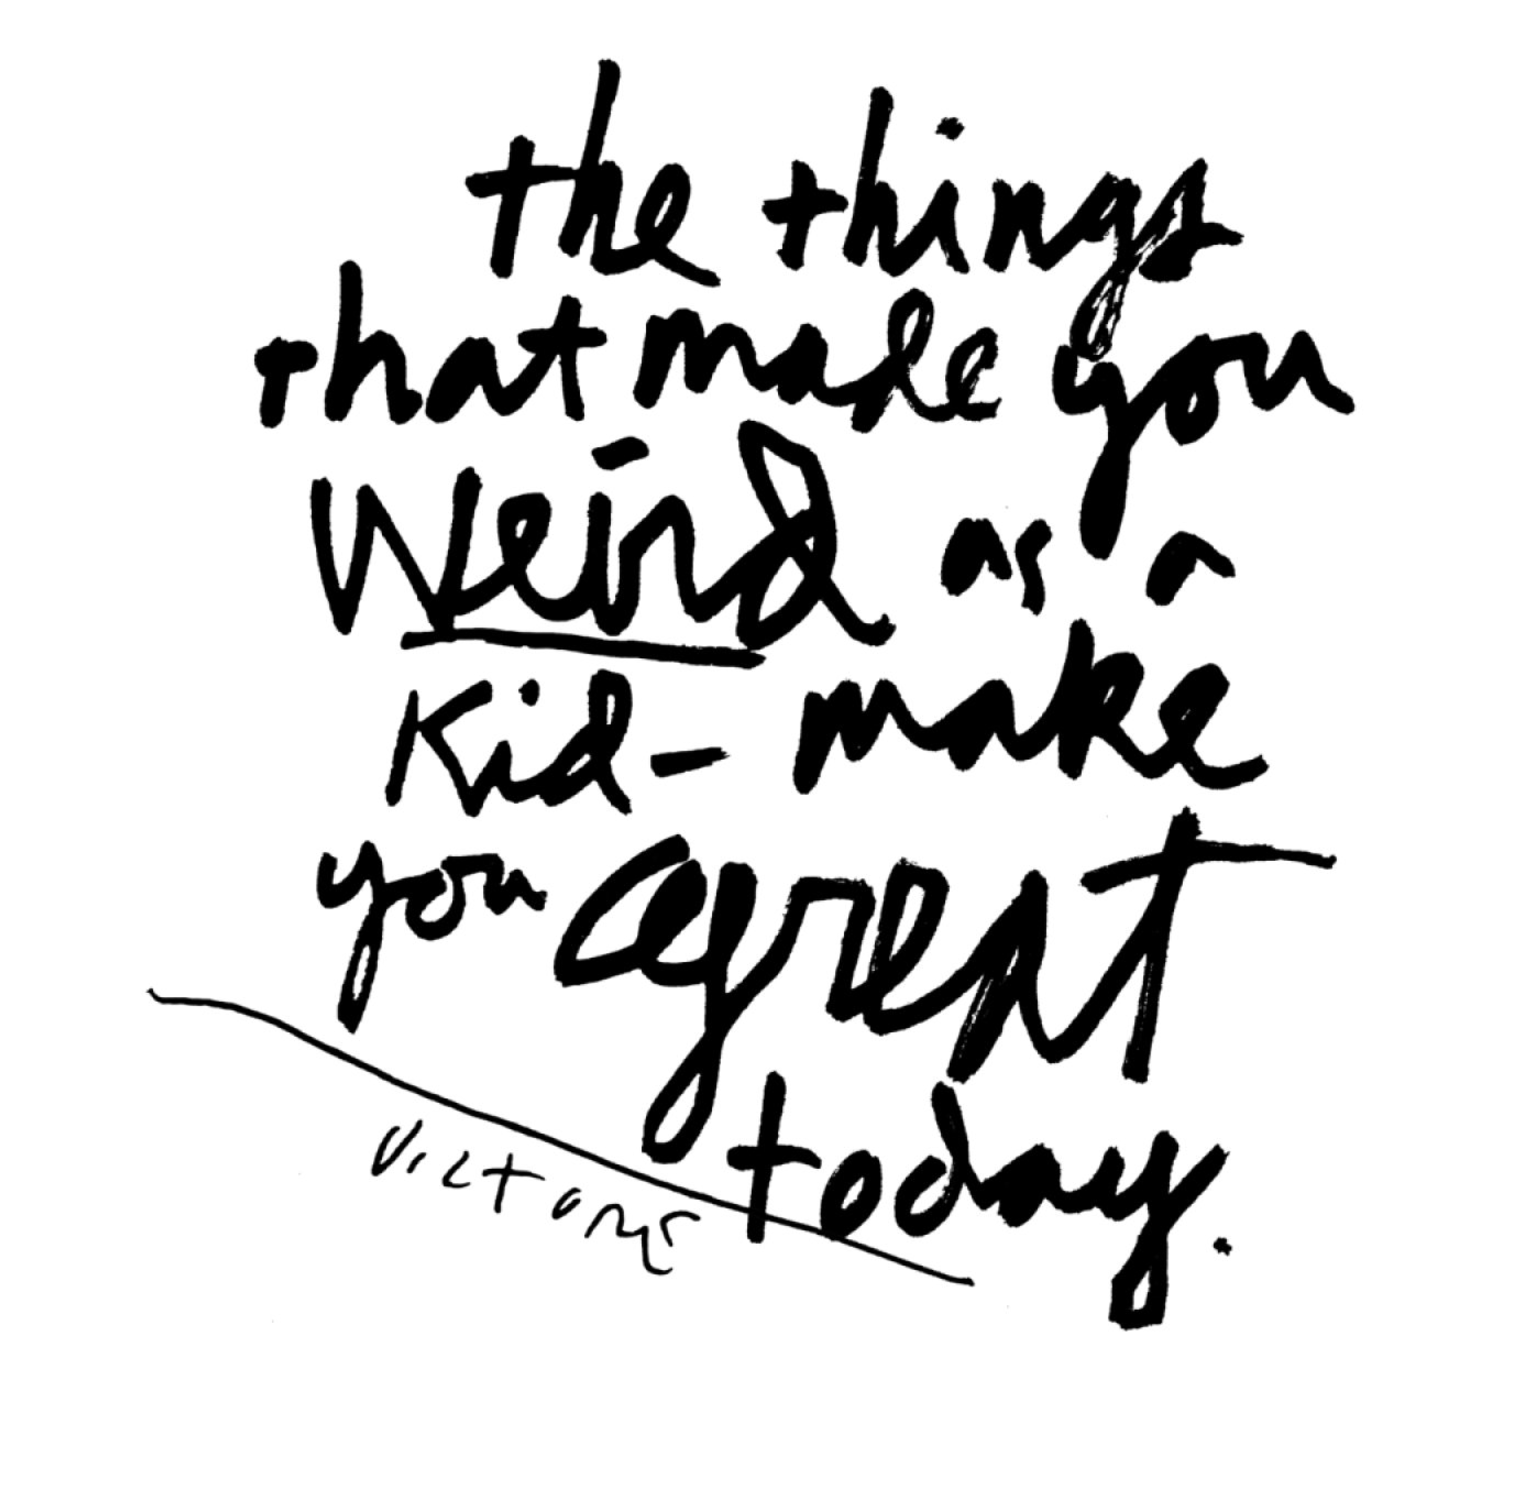 the things
that made you
weird as a
kid- make
you great
today.
VICTORE